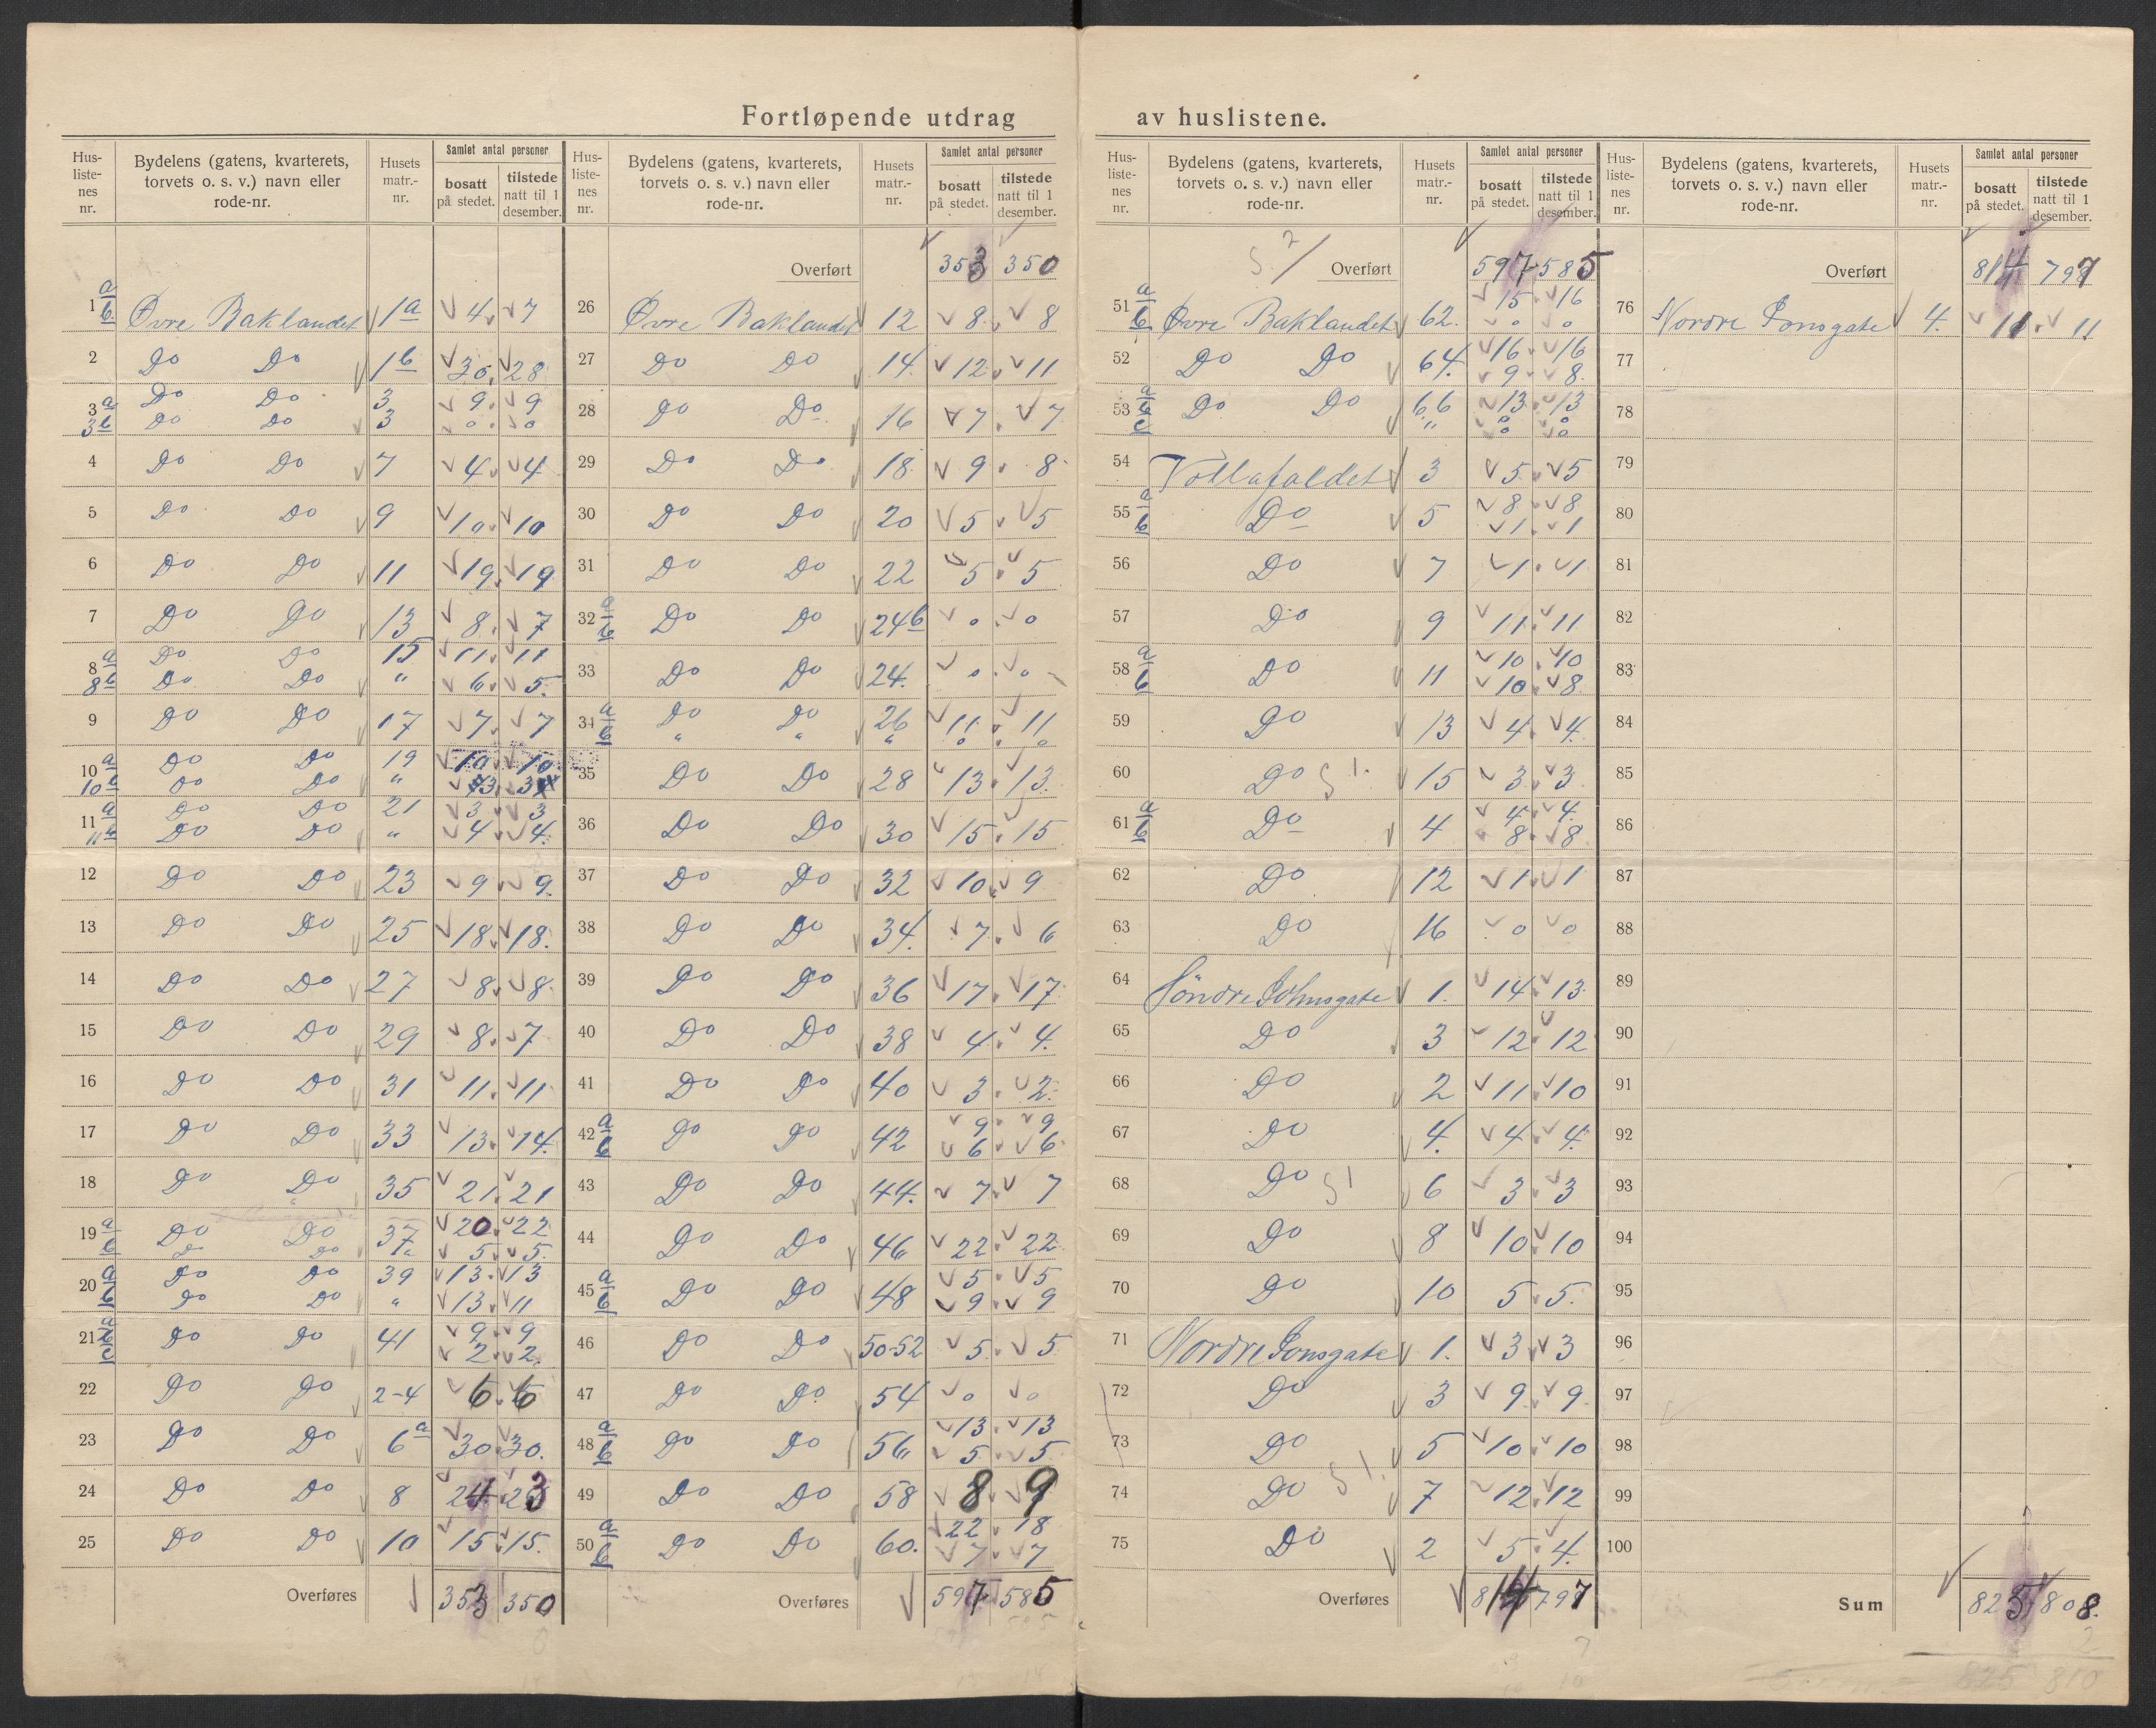 Fortløpende utdrag av huslistene.
Hus-listenes nr. | Bydelens (gatens, kvarterets, torvets o. s. v.) navn eller rode-nr. | Husets matr.-nr. | Samlet antal personer bosatt på stedet. | tilstede natt til 1 desember.
1 a b Øvre Baklandet 1a 4 7
2 Do Do 1b 30 28
3 a Do Do 3 9 9
3 b Do Do 3 0 0
4 Do Do 7 4 4
5 Do Do 9 10 10
6 Do Do 11 19 19
7 Do Do 13 8 7
8 a Do Do 15 11 11
8 b Do Do " 6 5
9 Do Do 17 7 7
10 a Do Do 19 10 10
10 b Do Do " 3 3
11 a Do Do 21 3 3
11 b Do Do " 4 4
12 Do Do 23 9 9
13 Do Do 25 18 18
14 Do Do 27 8 8
15 Do Do 29 8 7
16 Do Do 31 11 11
17 Do Do 33 13 14
18 Do Do 35 21 21
19 a Do Do 37 20 22
b Do Do " 5 5
20 a Do Do 39 13 13
b Do Do " 13 11
21 a b Do Do 41 9 9
c 2 2
22 Do Do 2-4 6 6
23 Do Do 6a 30 30
24 Do Do 8 24 23
25 Do Do 10 15 15
Overføres 353 350
Hus-listenes nr. | Bydelens (gatens, kvarterets, torvets o. s. v.) navn eller rode-nr. | Husets matr.-nr. | Samlet antal personer bosatt på stedet. | tilstede natt til 1 desember.
Overført 353 350
26 Øvre Baklandet 12 8 8
27 Do Do 14 12 11
28 Do Do 16 7 7
29 Do Do 18 9 8
30 Do Do 20 5 5
31 Do Do 22 5 5
32 a b Do Do 24b 0 0
33 Do Do 24 0 0
34 a Do Do 26 11 11
b " " " 0 0
35 Do Do 28 13 13
36 Do Do 30 15 15
37 Do Do 32 10 9
38 Do Do 34 7 6
39 Do Do 36 17 17
40 Do Do 38 4 4
41 Do Do 40 3 2
42 a Do Do 42 9 9
b 6 6
43 Do Do 44 7 7
44 Do Do 46 22 22
45 a Do Do 48 5 5
b 9 9
46 Do Do 50-52 5 5
47 Do Do 54 0 0
48 a Do Do 56 13 13
b 5 5
49 Do Do 58 8 9
50 a Do Do 60 22 18
b 7 7
Overføres 597 585
Hus-listenes nr. | Bydelens (gatens, kvarterets, torvets o. s. v.) navn eller rode-nr. | Husets matr.-nr. | Samlet antal personer bosatt på stedet. | tilstede natt til 1 desember.
Overført 597 585
51 a Øvre Baklandet 62 15 16
b 0 0
52 Do Do 64 16 16
9 8
53 a Do Do 66 13 13
b 0 0
c " 0 0
54 Vollafaldet 3 5 5
55 a Do 5 8 8
b 1 1
56 Do 7 1 1
57 Do 9 11 11
58 a Do 11 10 10
b 10 8
59 Do 13 4 4
60 Do 15 3 3
61 a Do 4 4 4
b 8 8
62 Do 12 1 1
63 Do 16 0 0
64 Söndre Johnsgate 1 14 13
65 Do 3 12 12
66 Do 2 11 10
67 Do 4 4 4
68 Do 6 3 3
69 Do 8 10 10
70 Do 10 5 5
71 Nordre Jonsgate 1 3 3
72 Do 3 9 9
73 Do 5 10 10
74 Do 7 12 12
75 Do 2 5 4
Overføres 814 797
Hus-listenes nr. | Bydelens (gatens, kvarterets, torvets o. s. v.) navn eller rode-nr. | Husets matr.-nr. | Samlet antal personer bosatt på stedet. | tilstede natt til 1 desember.
Overført 814 797
76 Nordre Jonsgate 4 11 11
77
78
79
80
81
82
83
84
85
86
87
88
89
90
91
92
93
94
95
96
97
98
99
100
Sum 825 808
825 810